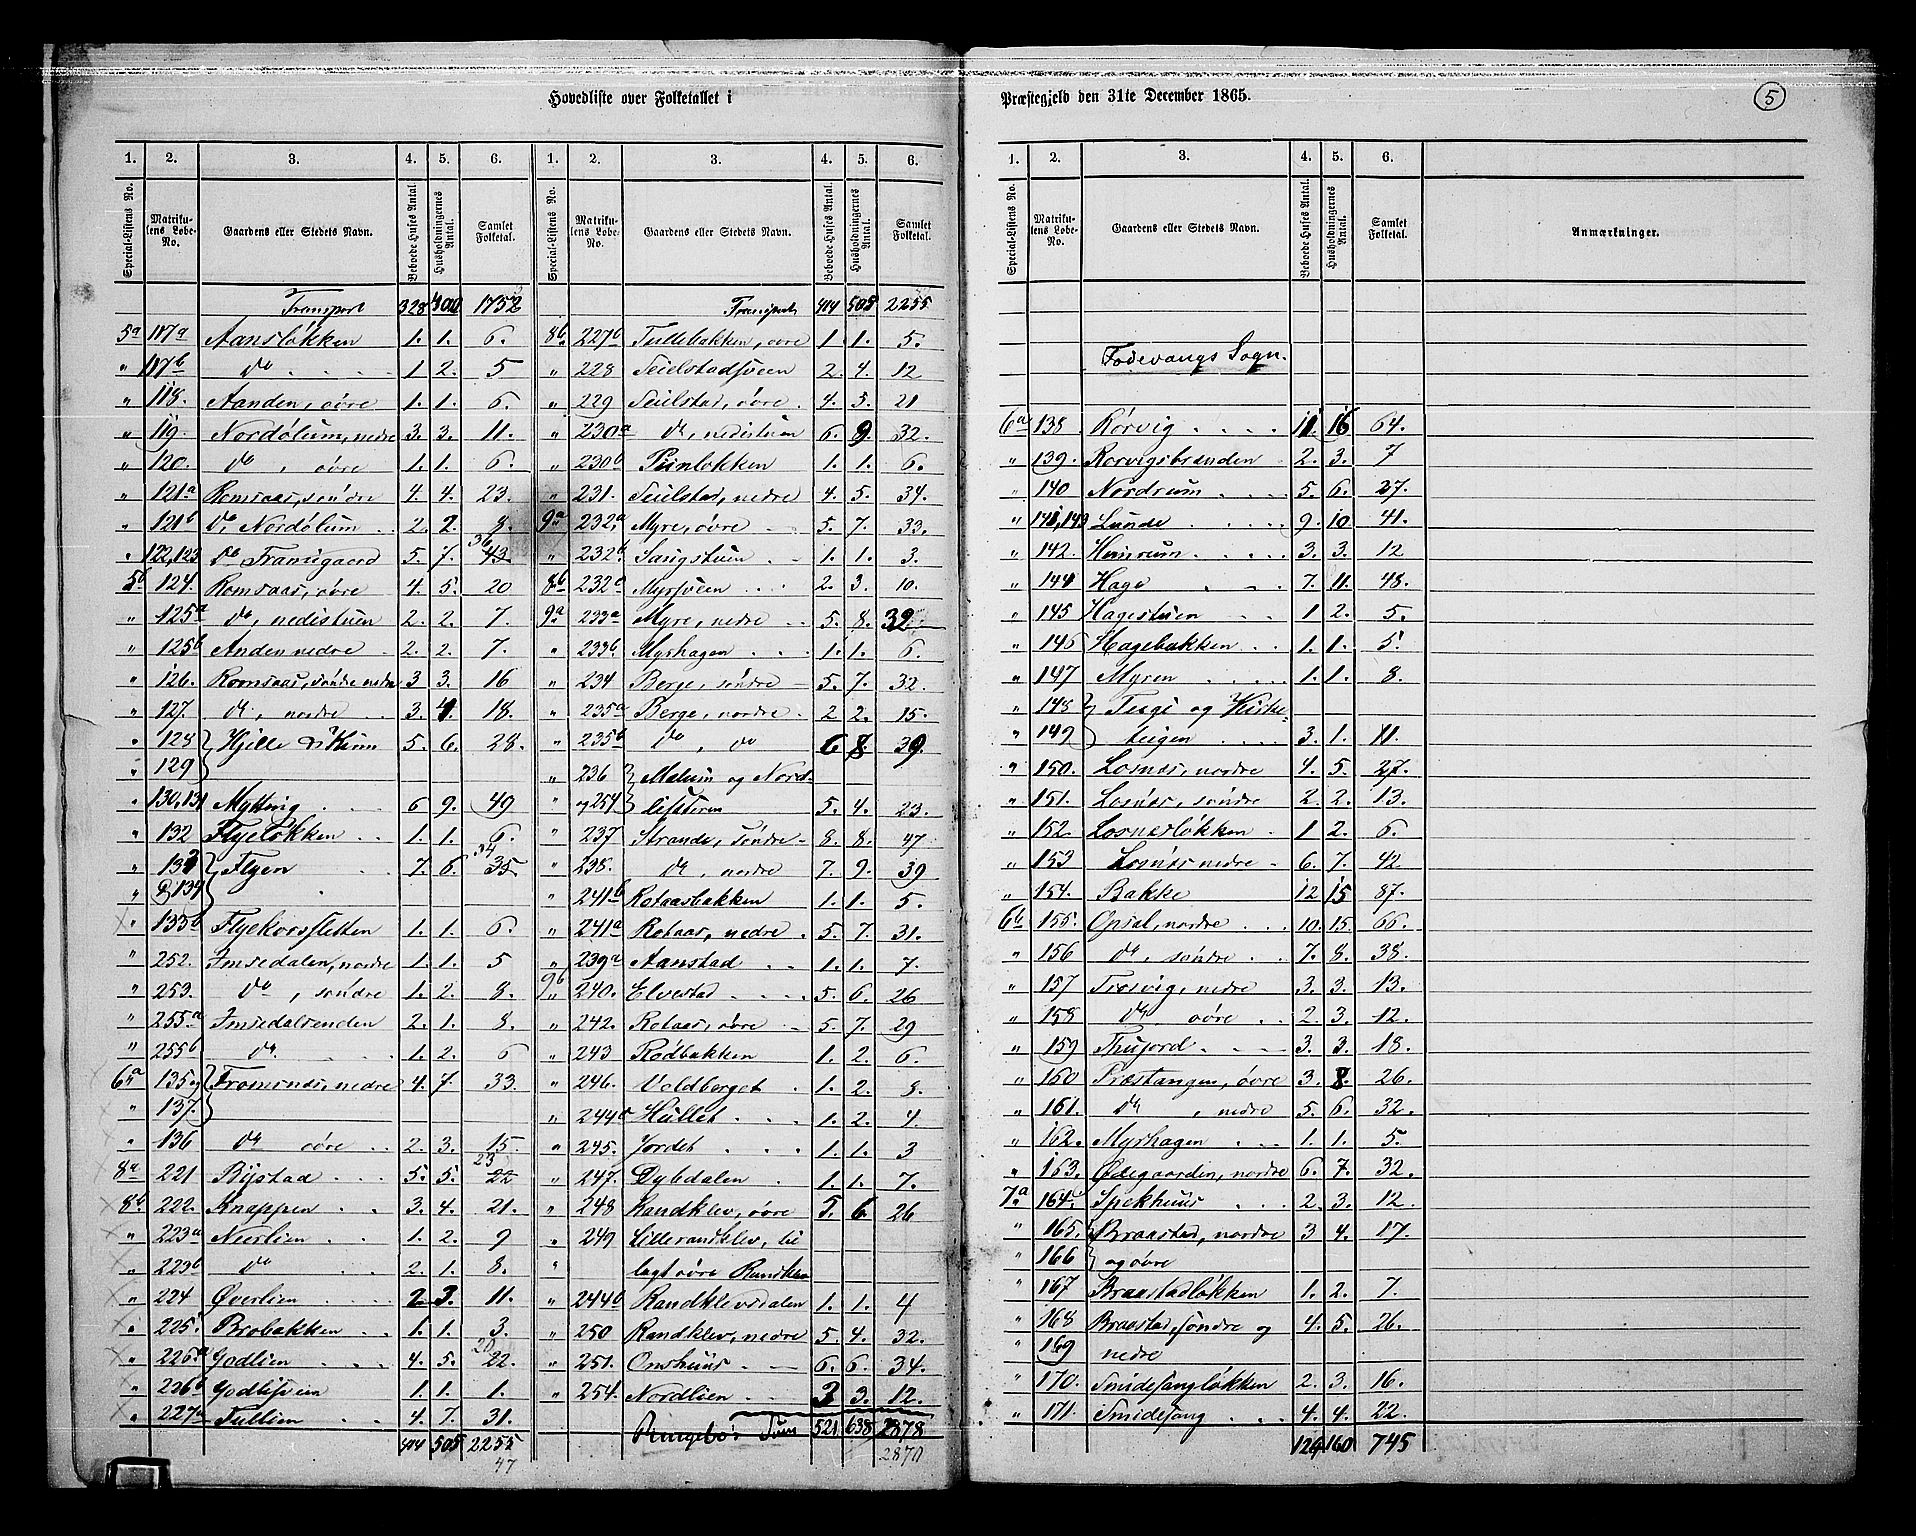 Hovedliste over Folketallet i
Præstegjeld den 31te December 1865.
5
1. 2. 3. 4. 5. 6.
Special-Listens No. Matrikulens Løbe-No. Gaardens eller Stedets Navn. Beboede Huses Antal. Husholdningernes Antal. Samlet Folketal.
Transport 328 400 1752
5a 117a Aansløkken 1. 1. 6.
" 117b do 1 2. 5
" 118. Aanden, øvre 1. 1. 6.
" 119. Nordølum, nedre 3. 3. 11.
" 120. do, øvre 1. 1. 6.
" 121a Romsaas, søndre 4. 4. 23.
" 121b do Nordølum 2. 2. 8.
" 122,123 do Framigaard 5. 7. 36 43
5b 124. Romsaas, øvre 4. 5. 20
" 125a do, nedistuen 2. 2. 7.
" 125b Anden nedre 2. 2. 7.
" 126. Romsaas, søndre nedre 3 3. 16
" 127. do, nordre 3. 4. 18.
" 128 Hjelle 5. 6. 28.
" 129
" 130,131 Mytting 6 9. 49
" 132 Flyeløkken 1. 1. 6.
" 133 Flyen 7. 6. 34 35
" & 134
" 133b Flyekorsfletten 1. 1. 6.
" 252. Imsedalen, nordre 1. 1. 5
" 253. do, søndre 1. 2. 8.
" 255a Imsedalsenden 2. 1. 8.
" 255b do. 1. 2. 6
6a 135 og Fromsnes, nedre 4. 7. 33.
" 137.
" 136 do øvre 2. 3. 15.
8a 221 Bystad 5. 5. 23 22
8b 222. Knappen 3. 4. 21.
" 223a Neerlien 1. 2. 9
" 223b do 2. 1. 8.
" 224 Øverlien 2 3. 11.
" 225. Brobakken 1. 1. 3.
" 226a Godlien 4. 5. 20 22.
" 226b Godlisveen 1. 1. 1.
" 227a Tullien 4. 7. 31.
404 505 2255
47
1. 2. 3. 4. 5. 6.
Special-Listens No. Matrikulens Løbe-No. Gaardens eller Stedets Navn. Beboede Huses Antal. Husholdningernes Antal. Samlet Folketal.
Transport 404 505 2255
8b 227b Tullebakken, øvre 1. 1. 5.
" 228 Seielstadsveen 2. 4. 12
" 229 Seielstad, øvre 4. 5. 21
" 230a do, nedistuen 6. 9. 32.
" 230b Piinløkken 1. 1. 6.
" 231. Seielstad, nedre 4. 5. 34.
9a 232a Myre, øvre 5. 7. 33.
" 232b Sangstuen 1. 1. 3.
8b 232a Myrsveen 2. 3. 10.
9a 233a Myre, nedre 5. 8. 32.
" 233b Myrhagen 1. 1. 6.
" 234 Berge, søndre 5. 7. 32.
" 235a Berge, nordre 2 2. 15.
" 235b do, do 6 8. 39.
" 236 Mælum og Nord-
" og 254 listuen 5. 4. 23.
" 237 Strande, søndre 8. 8. 47
" 238. do, nordre 7. 9. 39
" 241b Rotaasbakken 1. 1. 5.
" 241a Rotaas, nedre 5. 7. 31.
" 239a Aanstad 1. 1. 7.
9b 240. Elvestad 5. 6. 26
" 242. Rotaas, øvre 5. 7. 29
" 243 Rødbakken 1. 2. 6.
" 246. Voldberget 1. 2. 8.
" 244c Hullet 1. 2. 4.
" 245. Jordet 1. 1. 3
" 247. Dybdalen 1. 1. 7.
" 248 Randklev, øvre 5. 6. 26
" 249 Lillerandklev, til
" lagt øvre Randklev
" 244b Randklevsdalen 1. 1. 4
" 250 Randklev, nedre 5. 4. 32.
" 251. Onshuus 6. 6. 34.
" 254. Nordlien 3 3. 12.
Ringebo's Sum 521 638 2878
2870
1. 2. 3. 4. 5. 6.
Special-Listens No. Matrikulens Løbe-No. Gaardens eller Stedets Navn. Beboede Huses Antal. Husholdningernes Antal. Samlet Folketal. Anmærkninger.
Fodevangs Sogn.
6a 138 Rørvig 11. 16 64.
" 139. Rørvigsbranden 2. 3. 7
" 140 Nordrum 5. 6. 27.
" 141,143 Lunde 9. 10 41.
" 142. Hemrum 3. 3. 12
" 144 Hage 7. 11. 48.
" 145 Hagestuen 1 2. 5.
" 146 Hagebakken 1. 1. 5.
" 147 Myren 1. 1. 8.
" 148 Teigi og Kirke-
" 149 teigen 3. 1. 11.
" 150. Losnes, nordre 4. 5. 27.
" 151. Losnes, søndre 2. 2. 13.
" 152. Losnesløkken 1 2. 6.
" 153 Losnes nedre 6. 7. 42
" 154. Bakke 12 15 87.
6b 155. Opsal, nordre 10. 15. 66.
" 156 do, søndre 7. 8. 38.
" 157 Trosvig, nedre 3. 3. 13.
" 158 do øvre 2. 3. 12.
" 159 Thujord 3. 3. 18.
" 160 Træstangen, øvre 3. 8. 26.
" 161. do, nedre 5. 6. 32.
" 162. Myrhagen 1. 1. 5.
" 163. Ødegaarden, nordre 6. 7. 32.
7a 164. Spekhuus 2. 3. 12
" 165 Braastad, nordre 3 4. 17.
" 166 og øvre
" 167 Braastadløkken 1. 2. 7.
" 168 Braastad, søndre og 4. 5. 26.
" 169 nedre
" 170. Smidesangløkken 2. 3. 16.
" 171. Smidesang 4. 4. 22.
129 160 745